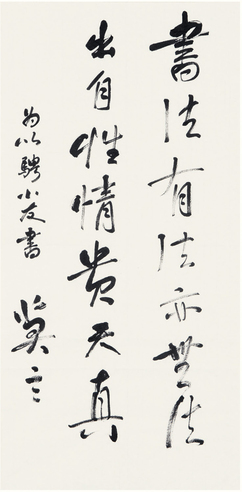 書法有法亦無法
出自性情貴天真
为以騁小友書
莫言